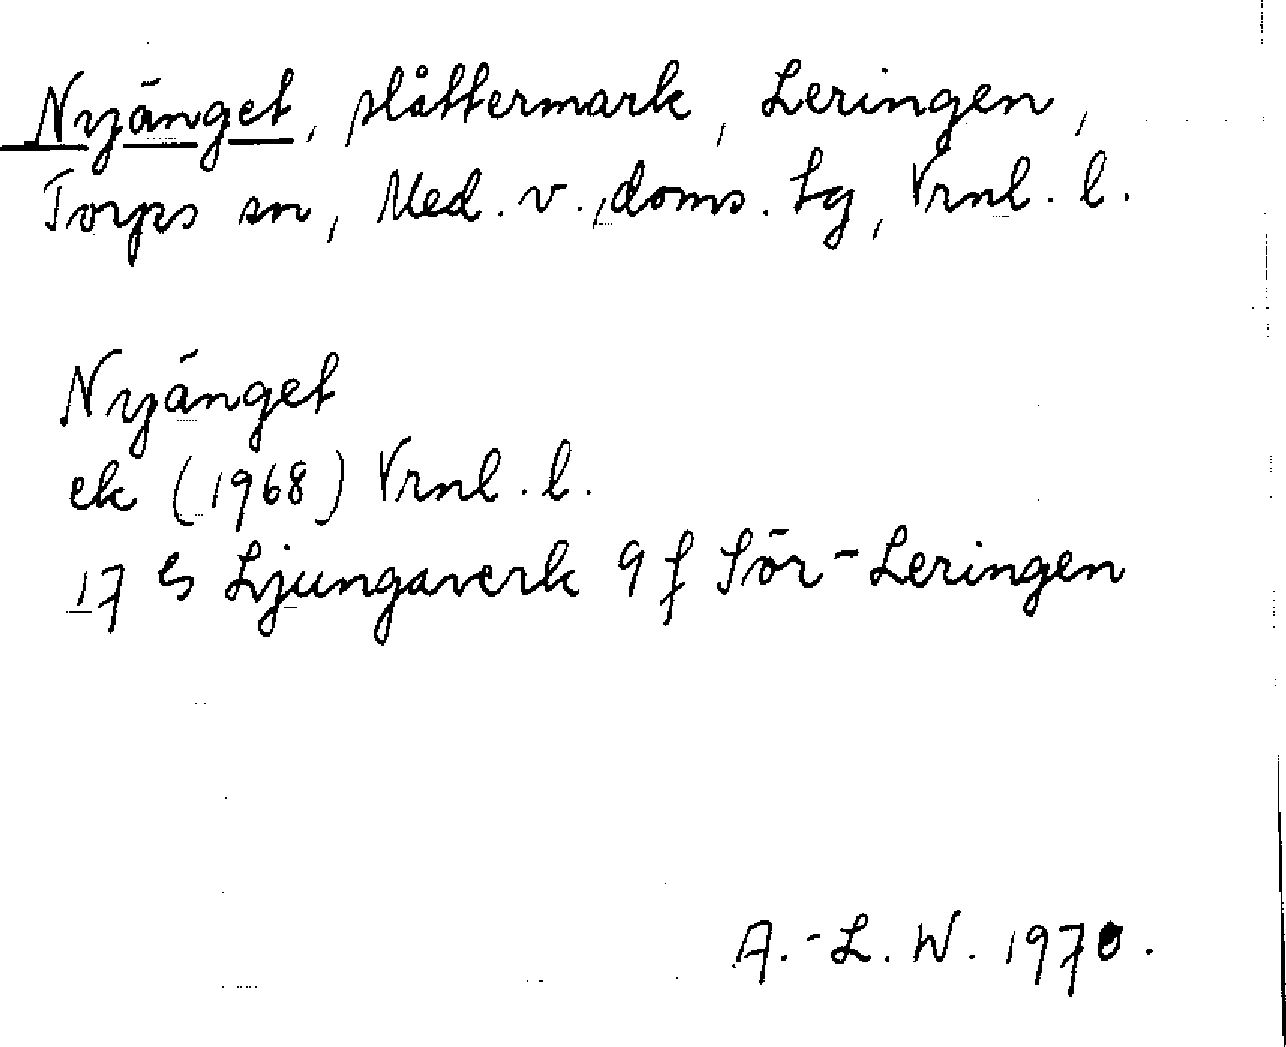 Nyänget, slåttermark, Leringen,
Torps sn, Med. v., doms. tg, Vrnl. l.
Nyänget
ek (1968) Vrnl. l.
17 G Ljungaverk 9 f Sör-Leringen
A.-L. W. 1970.